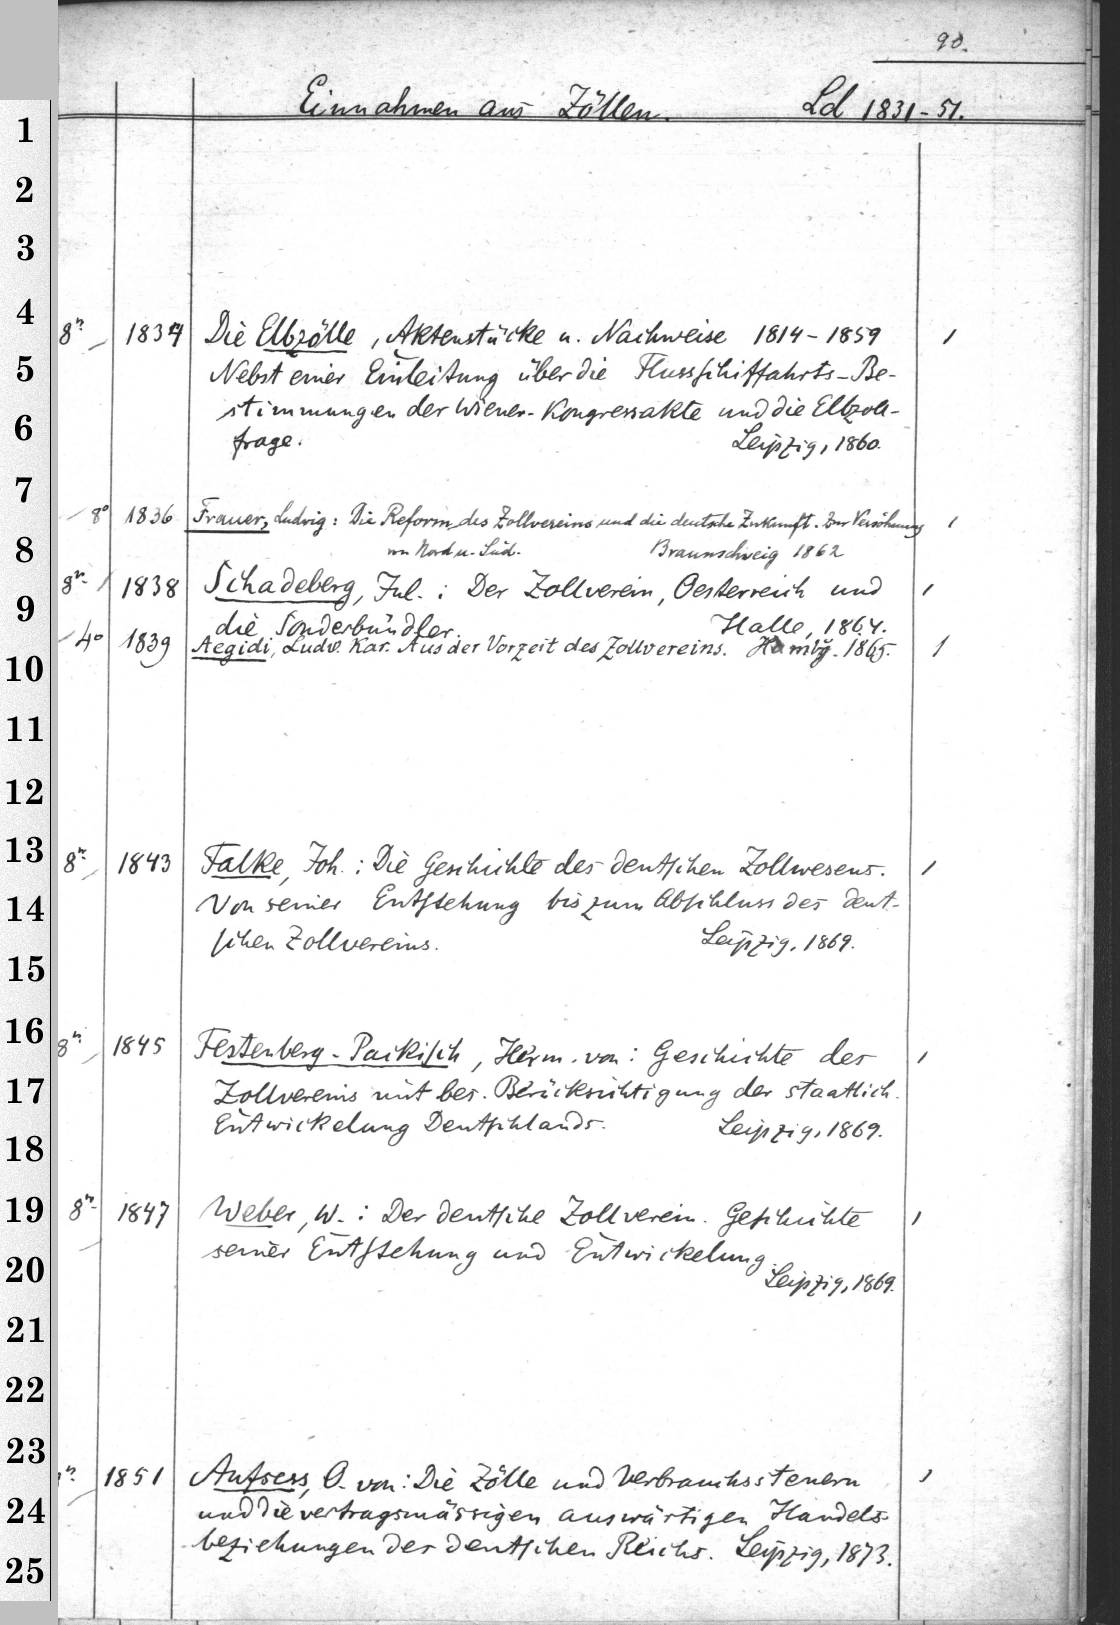 90.
Einnahmen aus Zöllen. Ld 1831-51.
8° 1834 Die Elbzölle, Aktenstücke u. Nachweise 1814-1859 1
Nebst einer Einleitung über die Flussschiffahrts-Be-
stimmungen der Wiener-Kongressakte und die Elbzoll-
frage. Leipzig, 1860.
8° 1836 Frauer, Ludwig: Die Reform des Zollvereins und die deutsche Zukunft. Zur Versöhnung 1
von Nord u. Süd. Braunschweig 1862
8° 1838 Schadeberg, Jul.: Der Zollverein, Oesterreich und 1
die Sonderbündler. Halle, 1864.
4° 1839 Aegidi, Ludw. Kar. Aus der Vorzeit des Zollvereins. Hambg. 1865. 1
8° 1843 Falke, Joh.: Die Geschichte des deutschen Zollwesens. 1
Von seiner Entstehung bis zum Abschluss des deut-
schen Zollvereins. Leipzig, 1869.
8° 1845 Festenberg-Packisch, Herm. von: Geschichte des 1
Zollvereins mit bes. Berücksichtigung der staatlich.
Entwickelung Deutschlands. Leipzig, 1869.
8° 1847 Weber, W.: Der deutsche Zollverein. Geschichte 1
seiner Entstehung und Entwickelung.
Leipzig, 1869.
1851 Aufsess, O. von: Die Zölle und Verbrauchssteuern 1
und die vertragsmässigen auswärtigen Handels
beziehungen des deutschen Reichs. Leipzig, 1873.
1
2
3
4
5
6
7
8
9
10
11
12
13
14
15
16
17
18
19
20
21
22
23
24
25